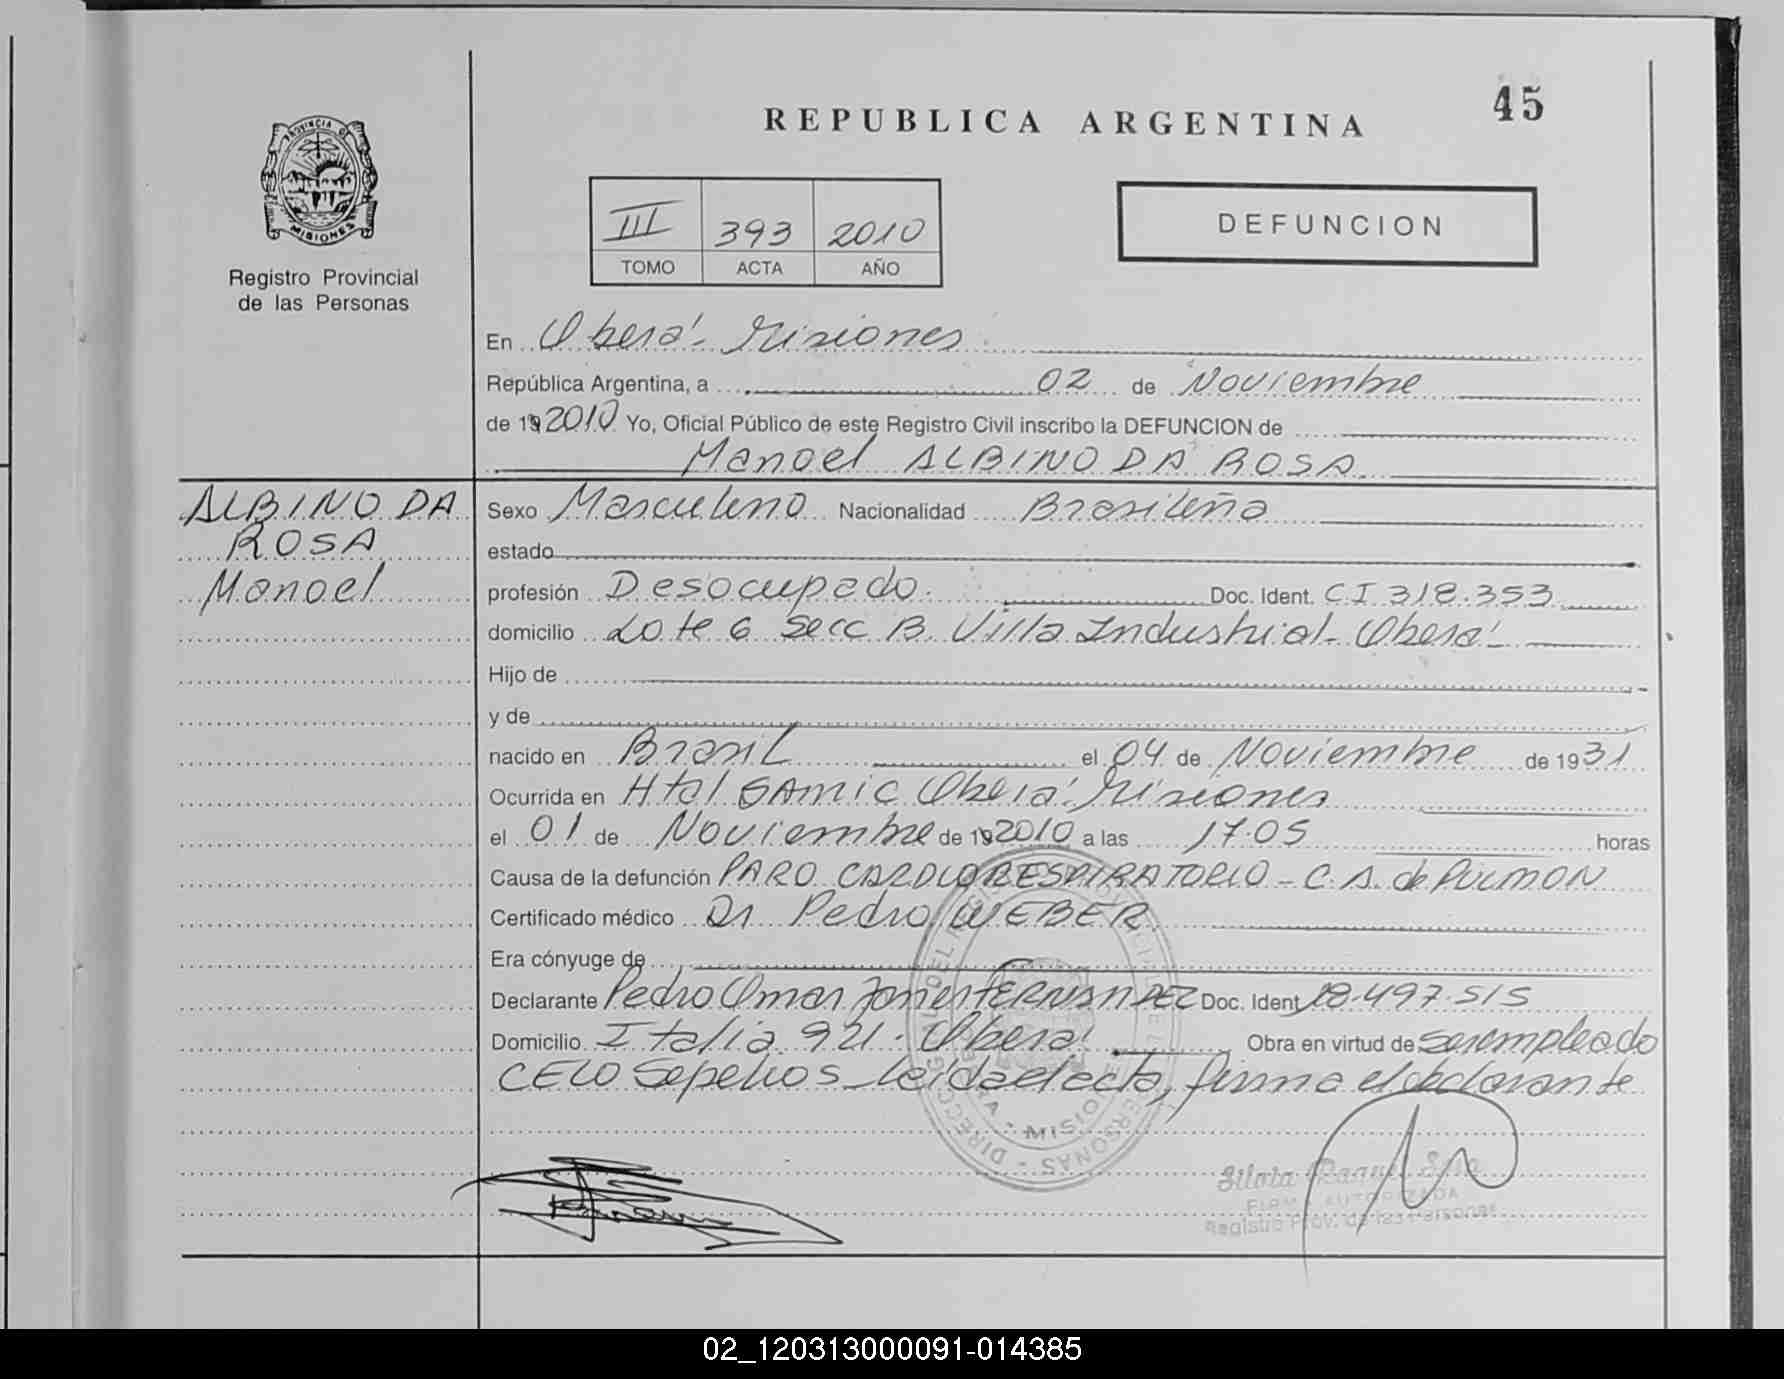 45
REPUBLICA ARGENTINA
PROVINCIA DE
MISIONES
Registro Provincial
de las Personas
III 393 2010
TOMO ACTA AÑO
DEFUNCION
En Oberá - Misiones
República Argentina, a 02 de Noviembre
de 19 2010 Yo, Oficial Público de este Registro Civil inscribo la DEFUNCION de
Manoel ALBINO DA ROSA
ALBINO DA
ROSA
Manoel
Sexo Masculino Nacionalidad Brasileña
estado
profesión Desocupado. Doc. Ident. CI 318.353
domicilio Lote 6 Secc B. Villa Industrial - Oberá
Hijo de
y de
nacido en Brasil el 04 de Noviembre de 1931
Ocurrida en Htal SAMIC Oberá - Misiones
el 01 de Noviembre de 19 2010 a las 17.05 horas
Causa de la defunción PARO CARDIORESPIRATORIO - C.A. de PULMON
Certificado médico Dr. Pedro WEBER
Era cónyuge de
Declarante Pedro Omar FERNANDEZ Doc. Ident 18.497.515
Domicilio Italia 921 - Oberá Obra en virtud de ser empleado
CELO Sepelios - leida el acta, firma el declarante
MISIONES
FIRMA AUTORIZADA
Registro Prov. de las Personas
02_120313000091-014385